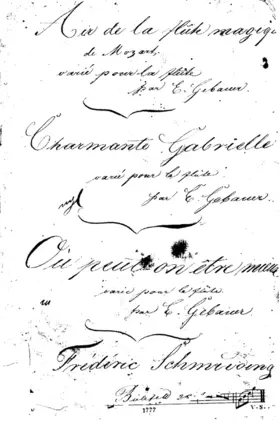 Air de la flûte magique
de Mozart,
varié pour la flûte
par E. Gebauer.
Charmante Gabrielle
varié pour la flûte
par E. Gebauer.
Où peut on être mieux
varié pour la flûte
par E. Gebauer
Frédéric
1777 V.S.